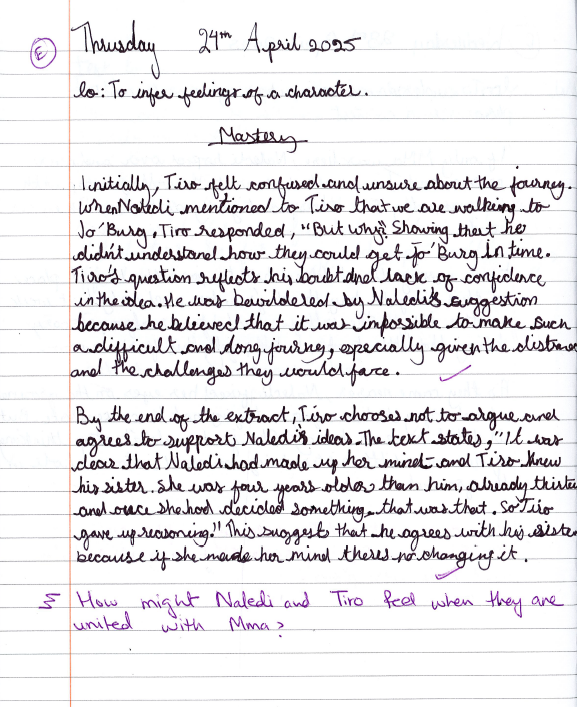 E Thrusday 24th April 2025
lo: To infer feelings of a character.
Mastery
Initially, Tiro felt confused and unsure about the journey.
When Naledi mentioned to Tiro that we are walking to
Jo'Burg, Tiro responded, "But why?". Showing that he
didn't understand how they could get Jo'Burg in time.
Tiro's question reflects his doubt and lack of confidence
in the idea. He was bewildered by Naledi's suggestion
because he believed that it was impossible to make such
a difficult and long journey, especially given the distance
and the challenges they would face.
By the end of the extract, Tiro chooses not to argue and
agrees to support Naledi's ideas. The text states, "It was
clear that Naledi had made up her mind and Tiro knew
his sister. She was four years older than him, already thirteen
and once she had decided something, that was that. So Tiro
gave up reasoning." This suggest that he agrees with his sister
because if she made her mind theres no changing it.
How might Naledi and Tiro feel when they are
united with Mma?